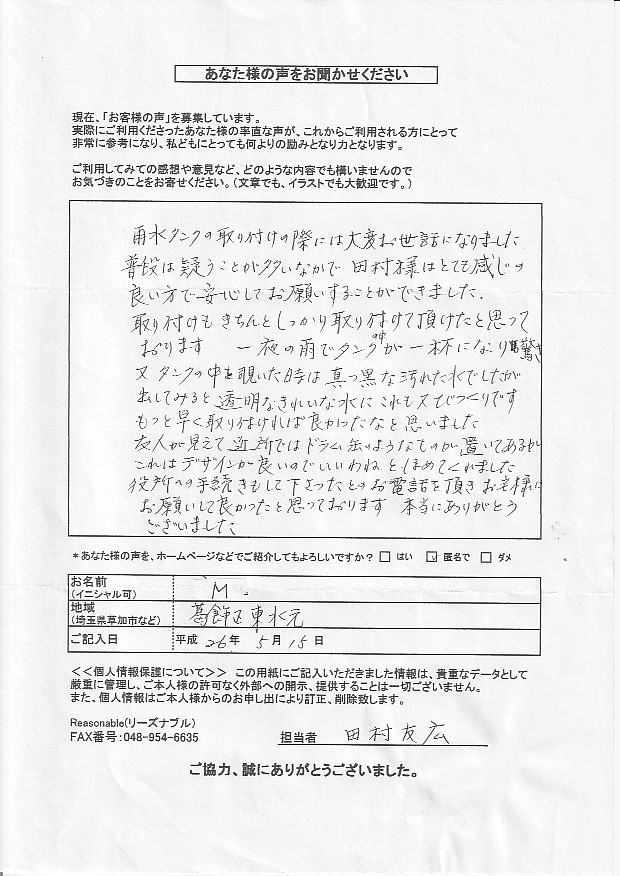 あなた様の声をお聞かせください
現在、「お客様の声」を募集しています。
実際にご利用くださったあなた様の率直な声が、これからご利用される方にとって
非常に参考になり、私どもにとっても何よりの励みとなり力となります。
ご利用してみての感想や意見など、どのような内容でも構いませんので
お気づきのことをお寄せください。（文章でも、イラストでも大歓迎です。）
雨水タンクの取り付けの際には大変お世話になりました
普段は疑うことが多いなかで 田村様はとても感じの
良い方で安心してお願いすることができました.
取り付けもきちんとしっかり取り付けて頂けたと思って
おります 一夜の雨でタンクの中が一杯になり驚き
又タンクの中を覗いた時は真っ黒な汚れた水でしたが
出してみると透明なきれいな水にこれも又びっくりです
もっと早く取り付ければ良かったなと思いました
友人が見えて近所ではドラム缶のようなものが置いてあるが
これはデザインが良いのでいいわねとほめてくれました
役所への手続きもして下さったとのお電話を頂きお客様に
お願いして良かったと思っております 本当にありがとう
ございました
*あなた様の声を、ホームページなどでご紹介してもよろしいですか？ □ はい ☑ 匿名で □ ダメ
お名前
（イニシャル可） M.
地域
（埼玉県草加市など） 葛飾区東水元
ご記入日 平成 26年 5月 15日
<<個人情報保護について>> この用紙にご記入いただきました情報は、貴重なデータとして
厳重に管理し、ご本人様の許可なく外部への開示、提供することは一切ございません。
また、個人情報はご本人様からのお申し出により訂正、削除致します。
Reasonable(リーズナブル)
FAX番号：048-954-6635 担当者 田村友広
ご協力、誠にありがとうございました。